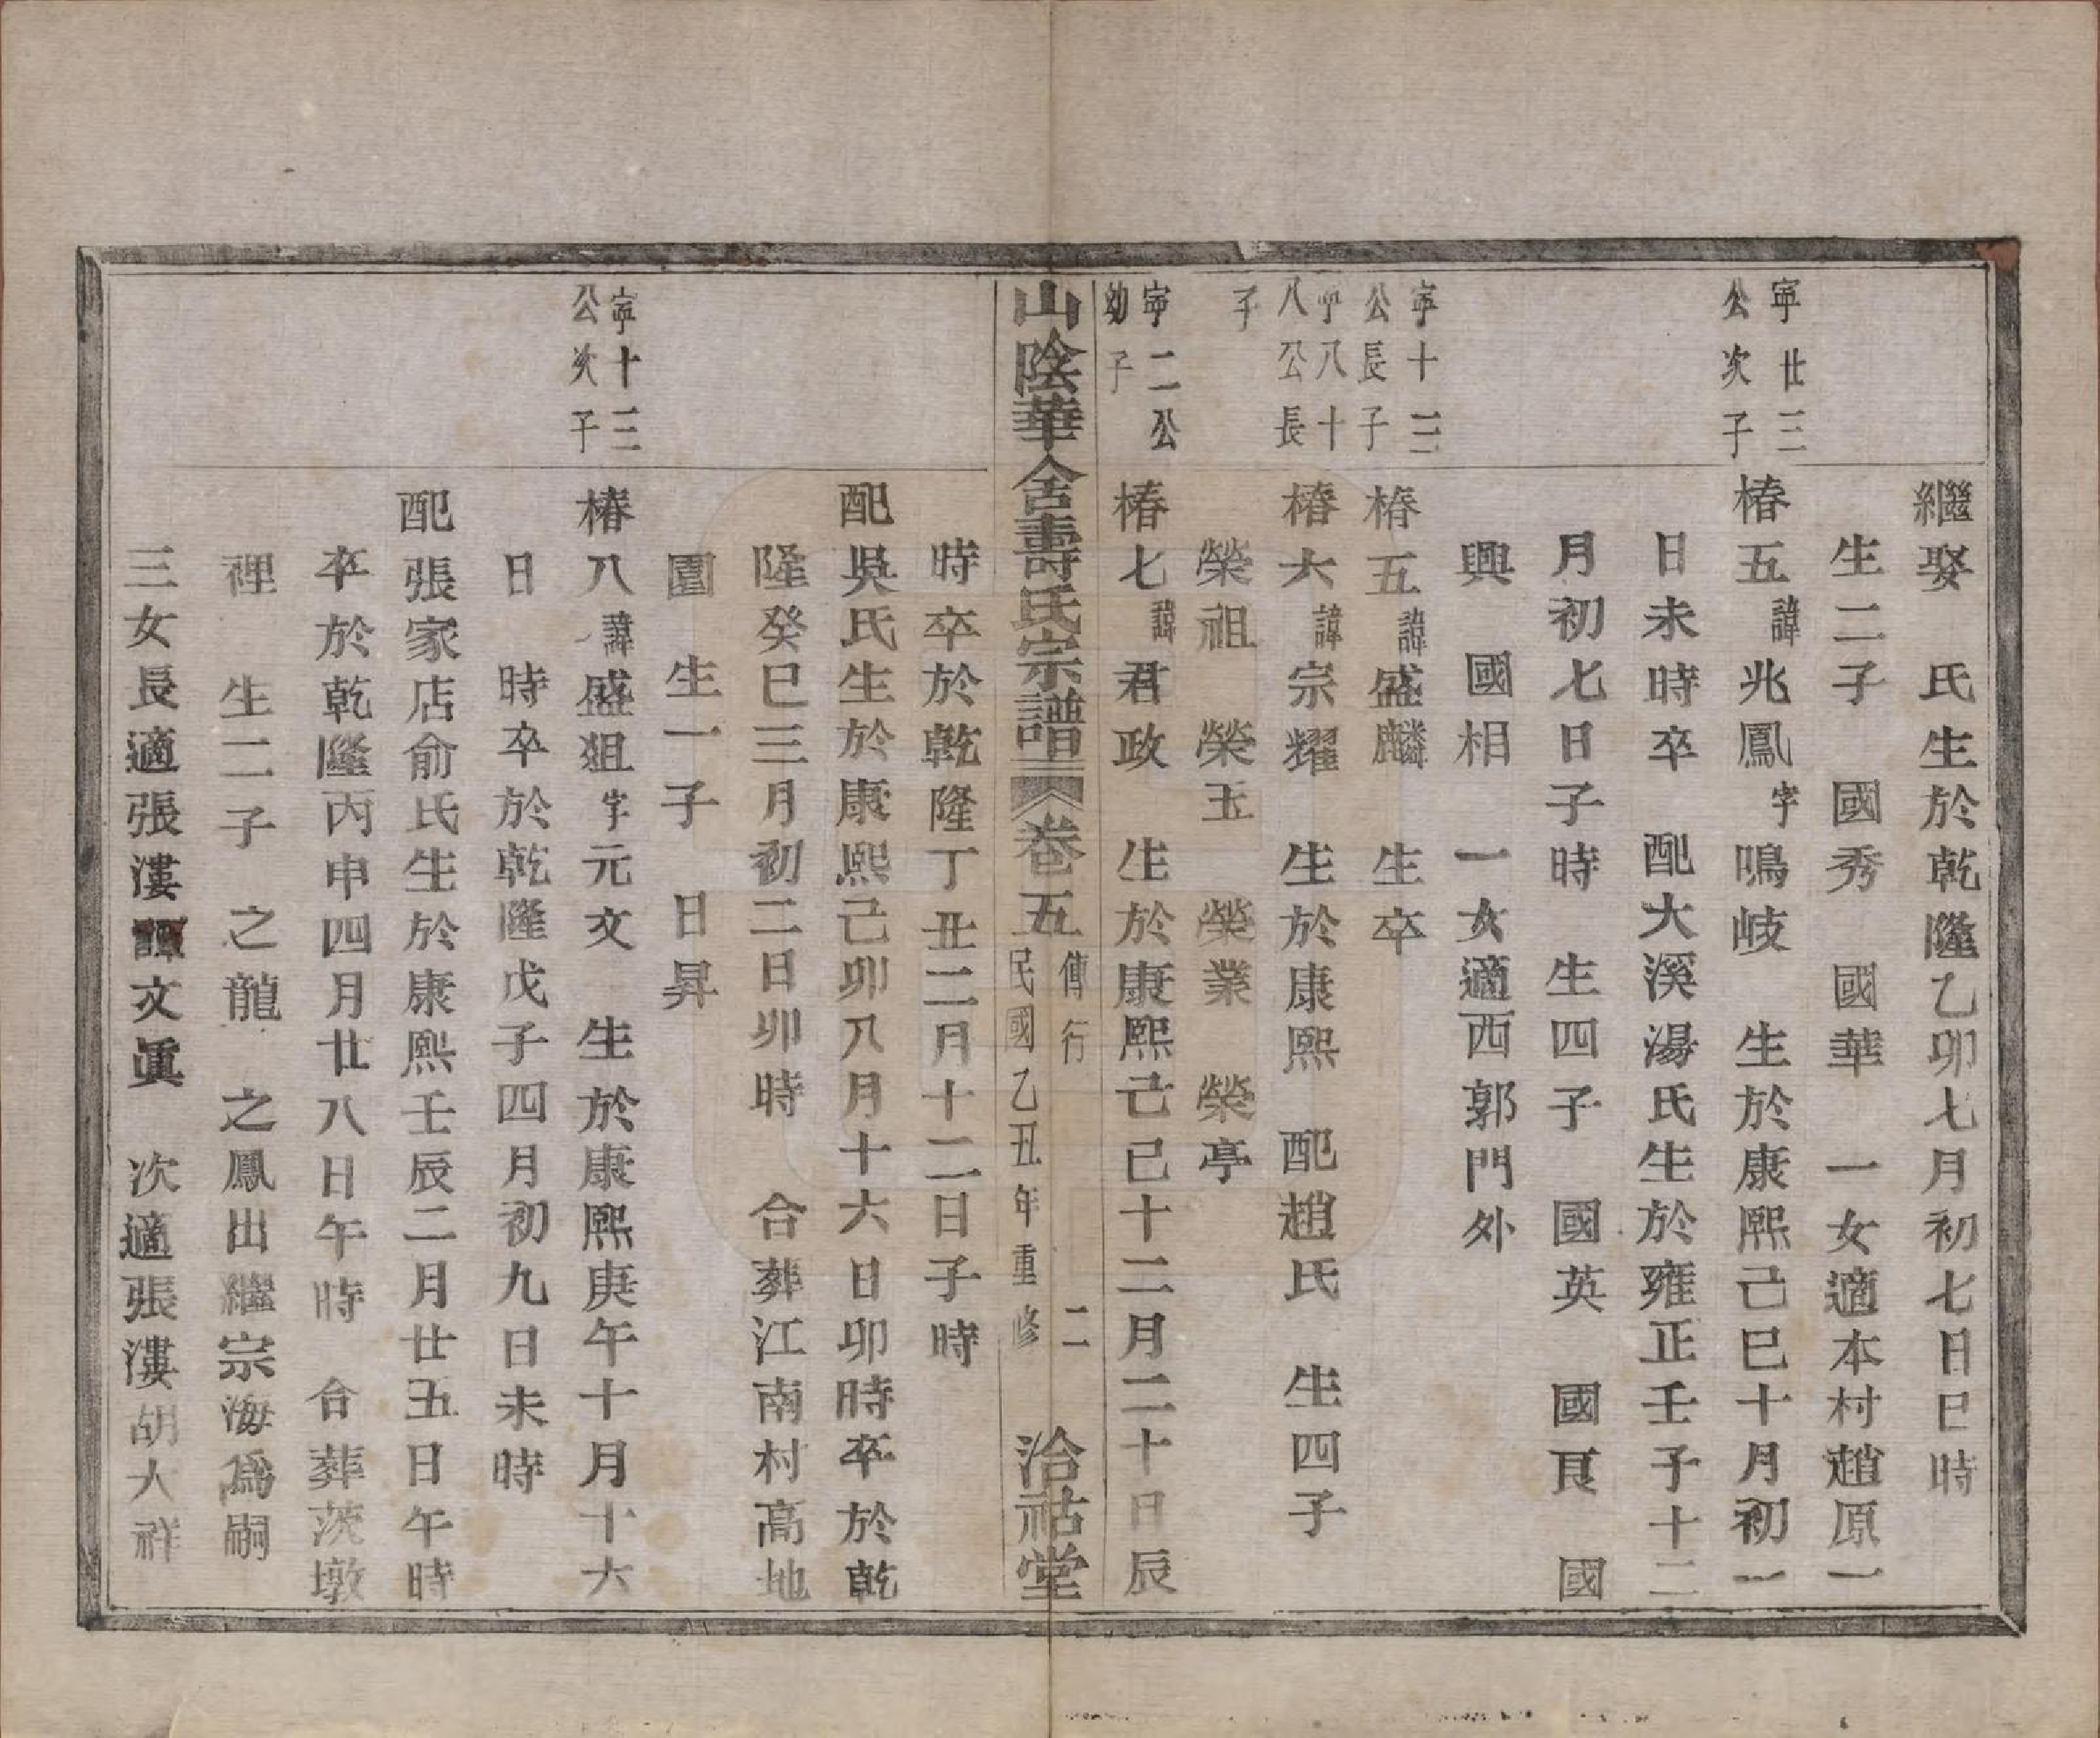 繼娶　氏生於乾隆乙卯七月初七日巳時
生二子　國秀　國華　一女適本村趙原一
寧廿三公次子
椿五諱兆鳳字鳴岐　生於康熙己巳十月初一
日未時卒　配大溪湯氏生於雍正壬子十二
月初七日子時　生四子　國英　國良　國
興　國相　一女適西郭門外
寧十三公長子
椿五諱盛麟　生卒
寧八十八公長子
椿六諱宗耀　生於康熙　配趙氏　生四子
榮祖　榮玉　榮業　榮亭
寧二公幼子
椿七諱君政　生於康熙己巳十二月二十日辰
山陰華舍壽氏宗譜　卷五　傳行　二　民國乙丑年重修　洽祜堂
時卒於乾隆丁丑二月十二日子時
配吳氏生於康熙己卯八月十六日卯時卒於乾
隆癸巳三月初二日卯時　合葬江南村高地
園　生一子　日昇
寧十三公次子
椿八諱盛狙字元文　生於康熙庚午十月十六
日　時卒於乾隆戊子四月初九日未時
配張家店俞氏生於康熙壬辰二月廿五日午時
卒於乾隆丙申四月廿八日午時　合葬茨墩
裡　生二子　之龍　之鳳出繼宗海爲嗣
三女長適張漊譚文眞　次適張漊胡大祥